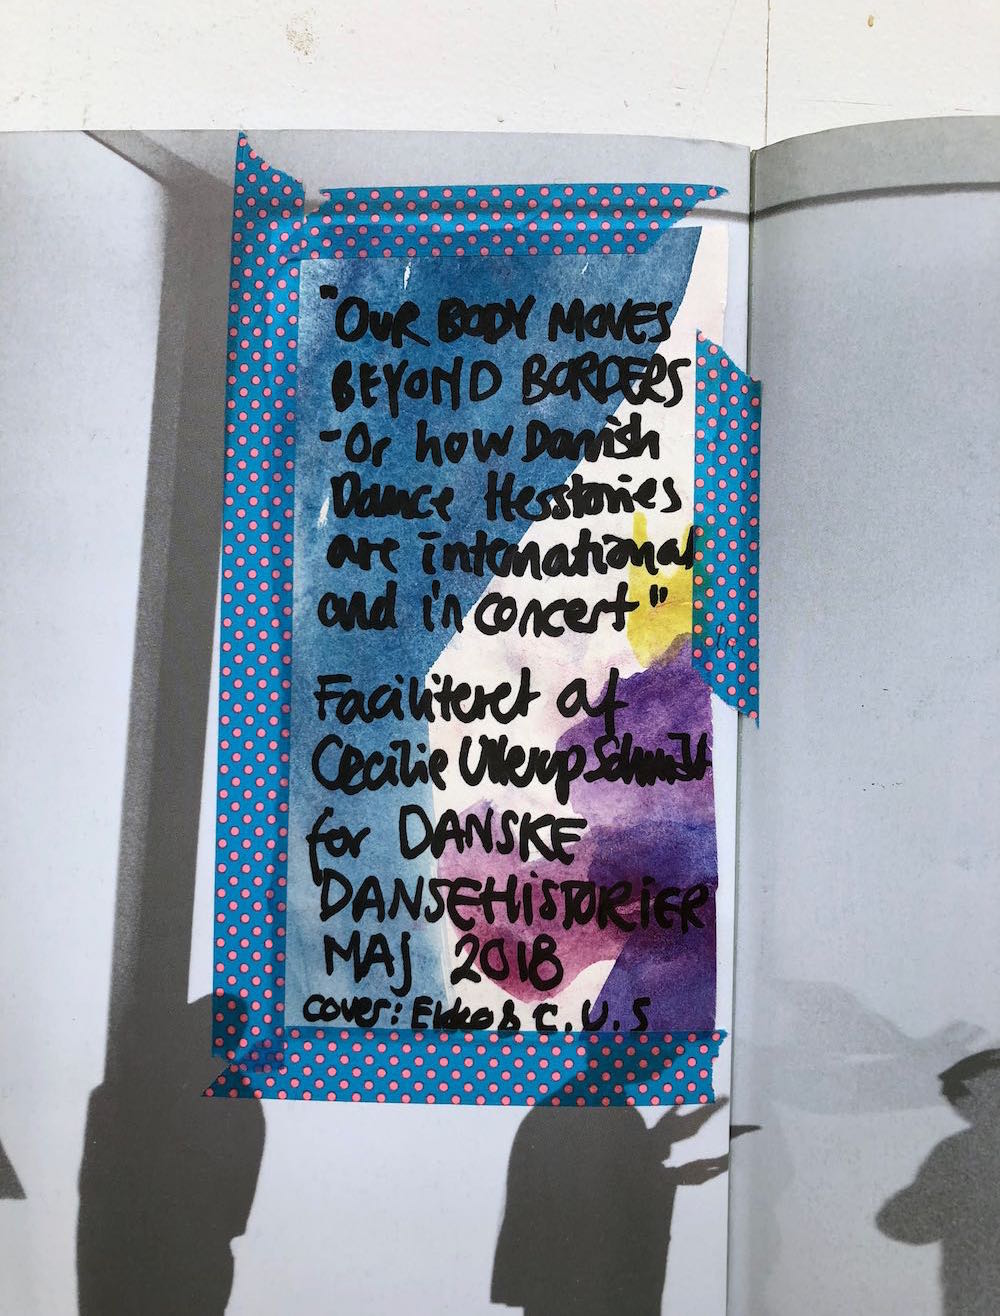 "OUR BODY MOVES
BEYOND BORDERS
-Or how Danish
Dance Hesstories
are international
and in concert"
Faciliteret af
Cecilie Ullerup Schmidt
for DANSKE
DANSEHiSTORiER
MAJ 2018
cover: Ekko & C.U.S